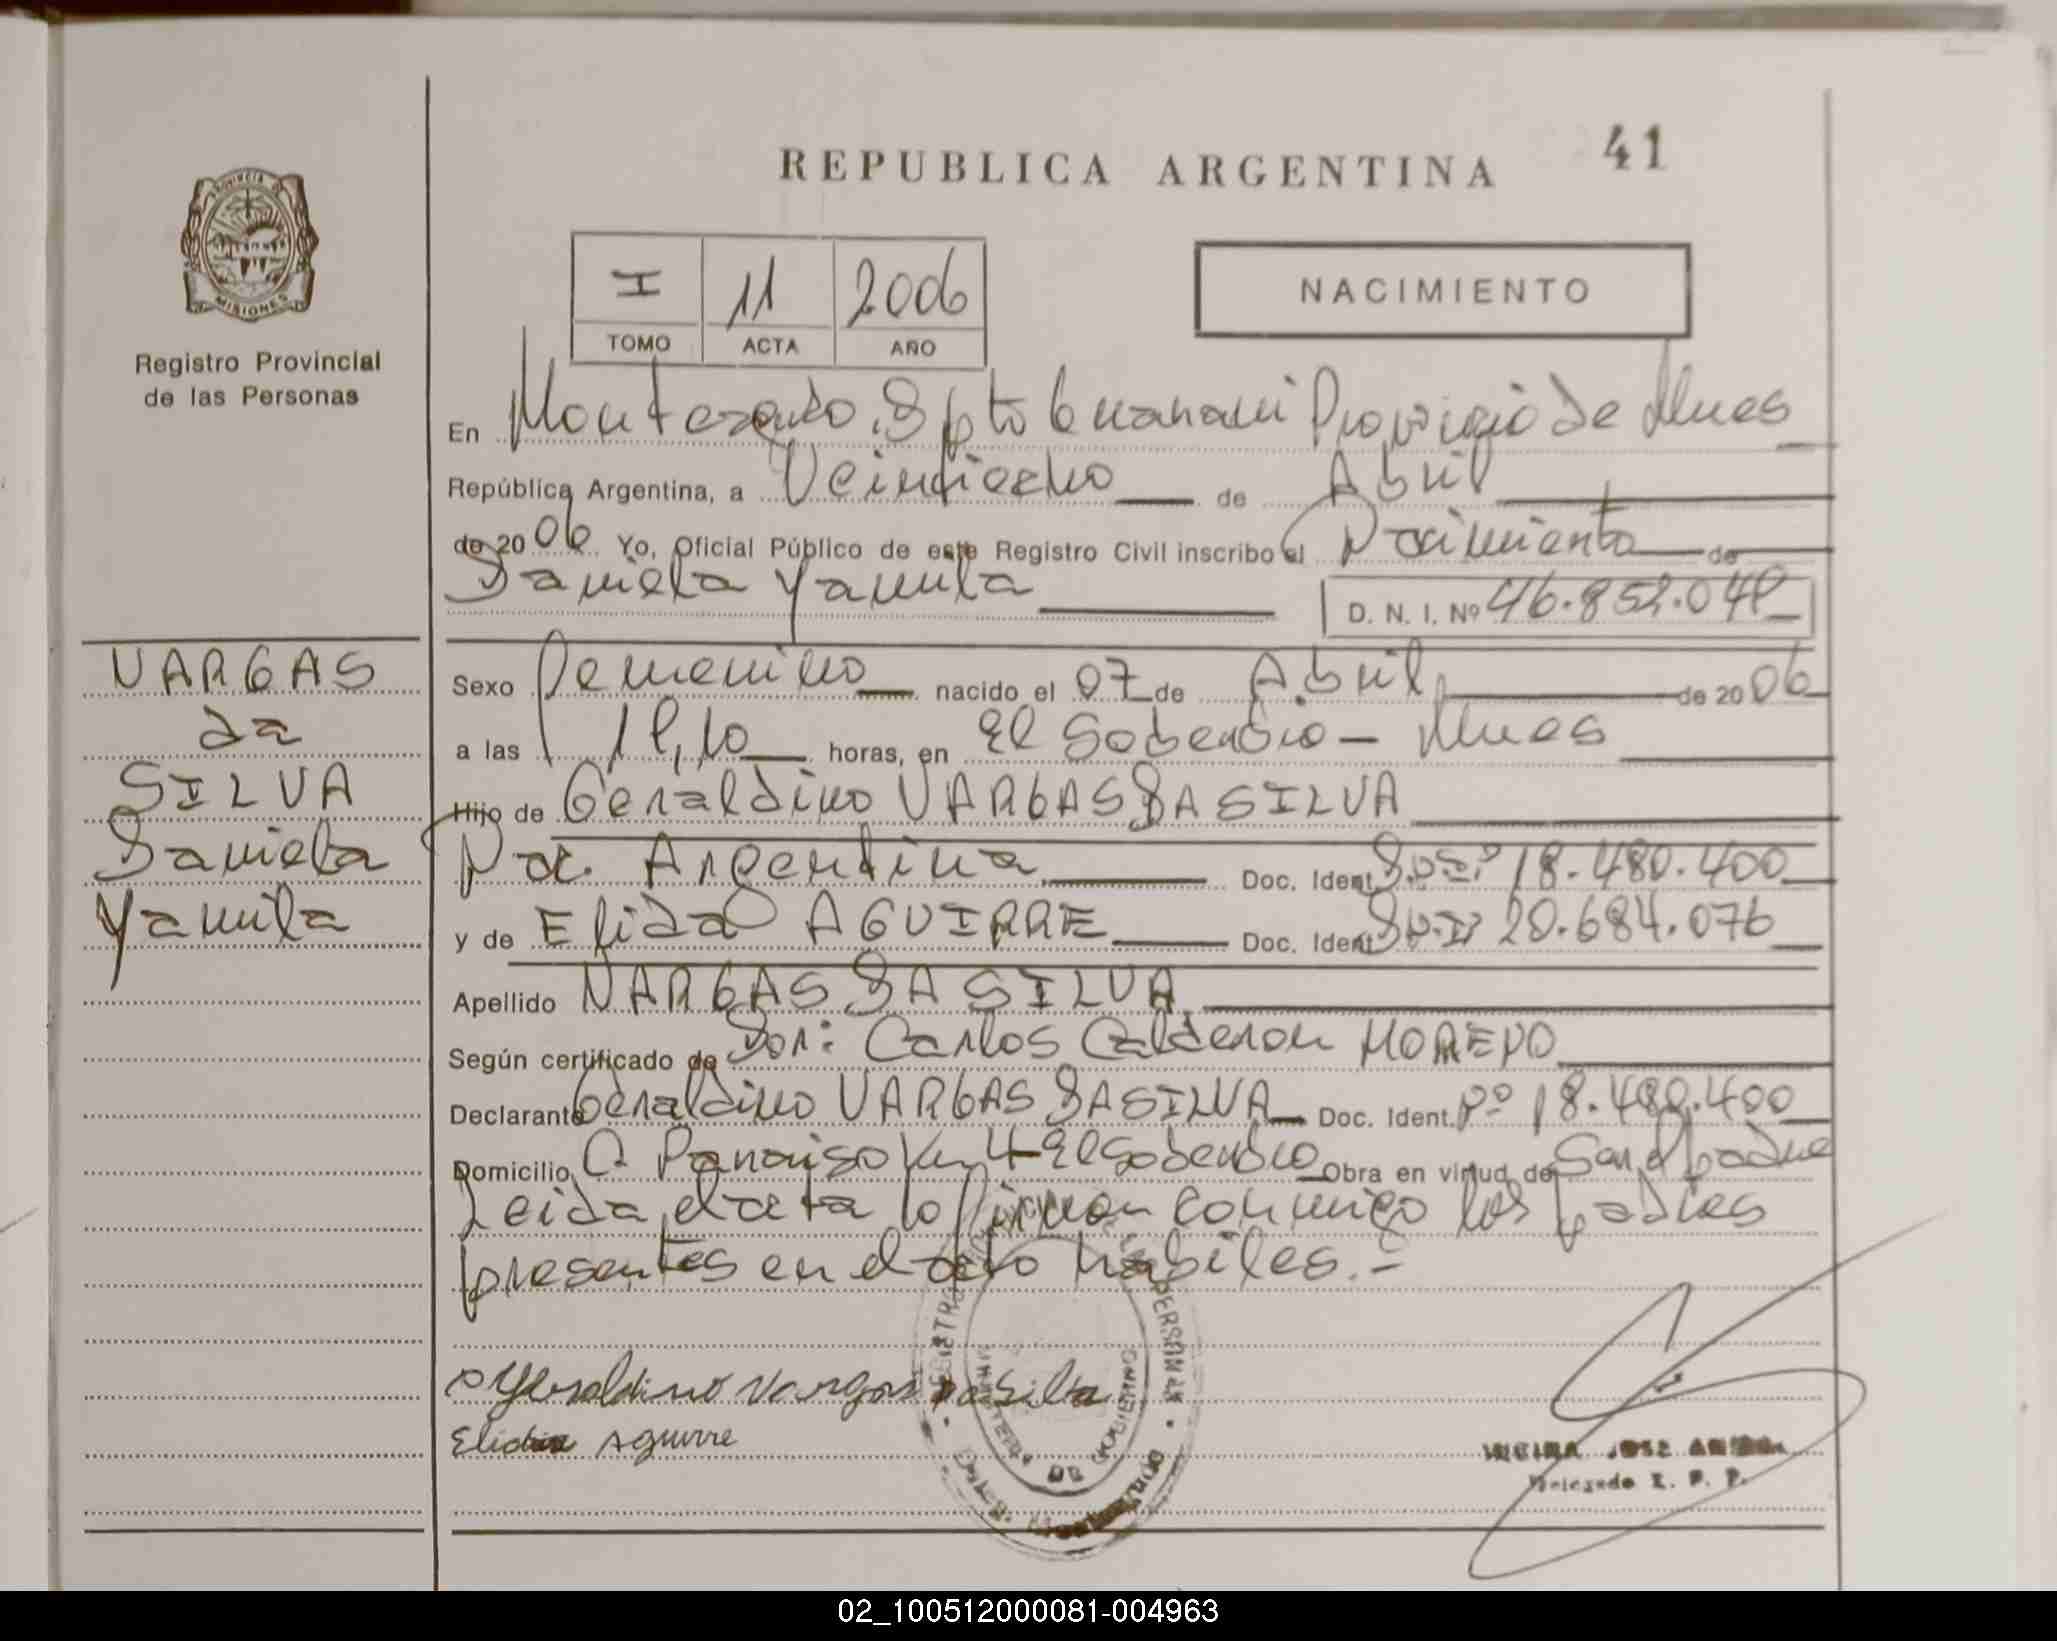 REPUBLICA ARGENTINA
41
PROVINCIA D
MISIONES
Registro Provincial
de las Personas
I 11 2006
TOMO ACTA AÑO
NACIMIENTO
En Monteagudo, Dpto Guarani Provincia de Mnes
República Argentina, a Veintiocho de Abril
de 2006 Yo, Oficial Público de este Registro Civil inscribo el Nacimiento de
Daniela Yamila
D. N. I. Nº
VARGAS
da
SILVA
Daniela
Yamila
Sexo Femenino nacido el 07 de Abril de 2006
a las horas, en El Soberbio - Mnes
Hijo de Geraldino VARGAS DA SILVA
Nac. Argentina Doc. Ident D.N.I. 18.480.400
y de Elida AGUIRRE Doc. Ident D.N.I 20.684.076
Apellido VARGAS DA SILVA
Según certificado de Dor: Carlos Calderon MORENO
Declarante Geraldino VARGAS DA SILVA Doc. Ident. Nº 18.480.400
Domicilio Paraiso Km 4 El Soberbio Obra en virtud de Ser el Padre
Leida el acta lo firman conmigo los padres
presentes en el acto habiles.-
Geraldino Vargas Da Silva
Elida Aguirre
REGISTRO DE LAS PERSONAS
MINISTERIO DE GOBIERNO
JOSE
Delegado R. P. P.
02_100512000081-004963